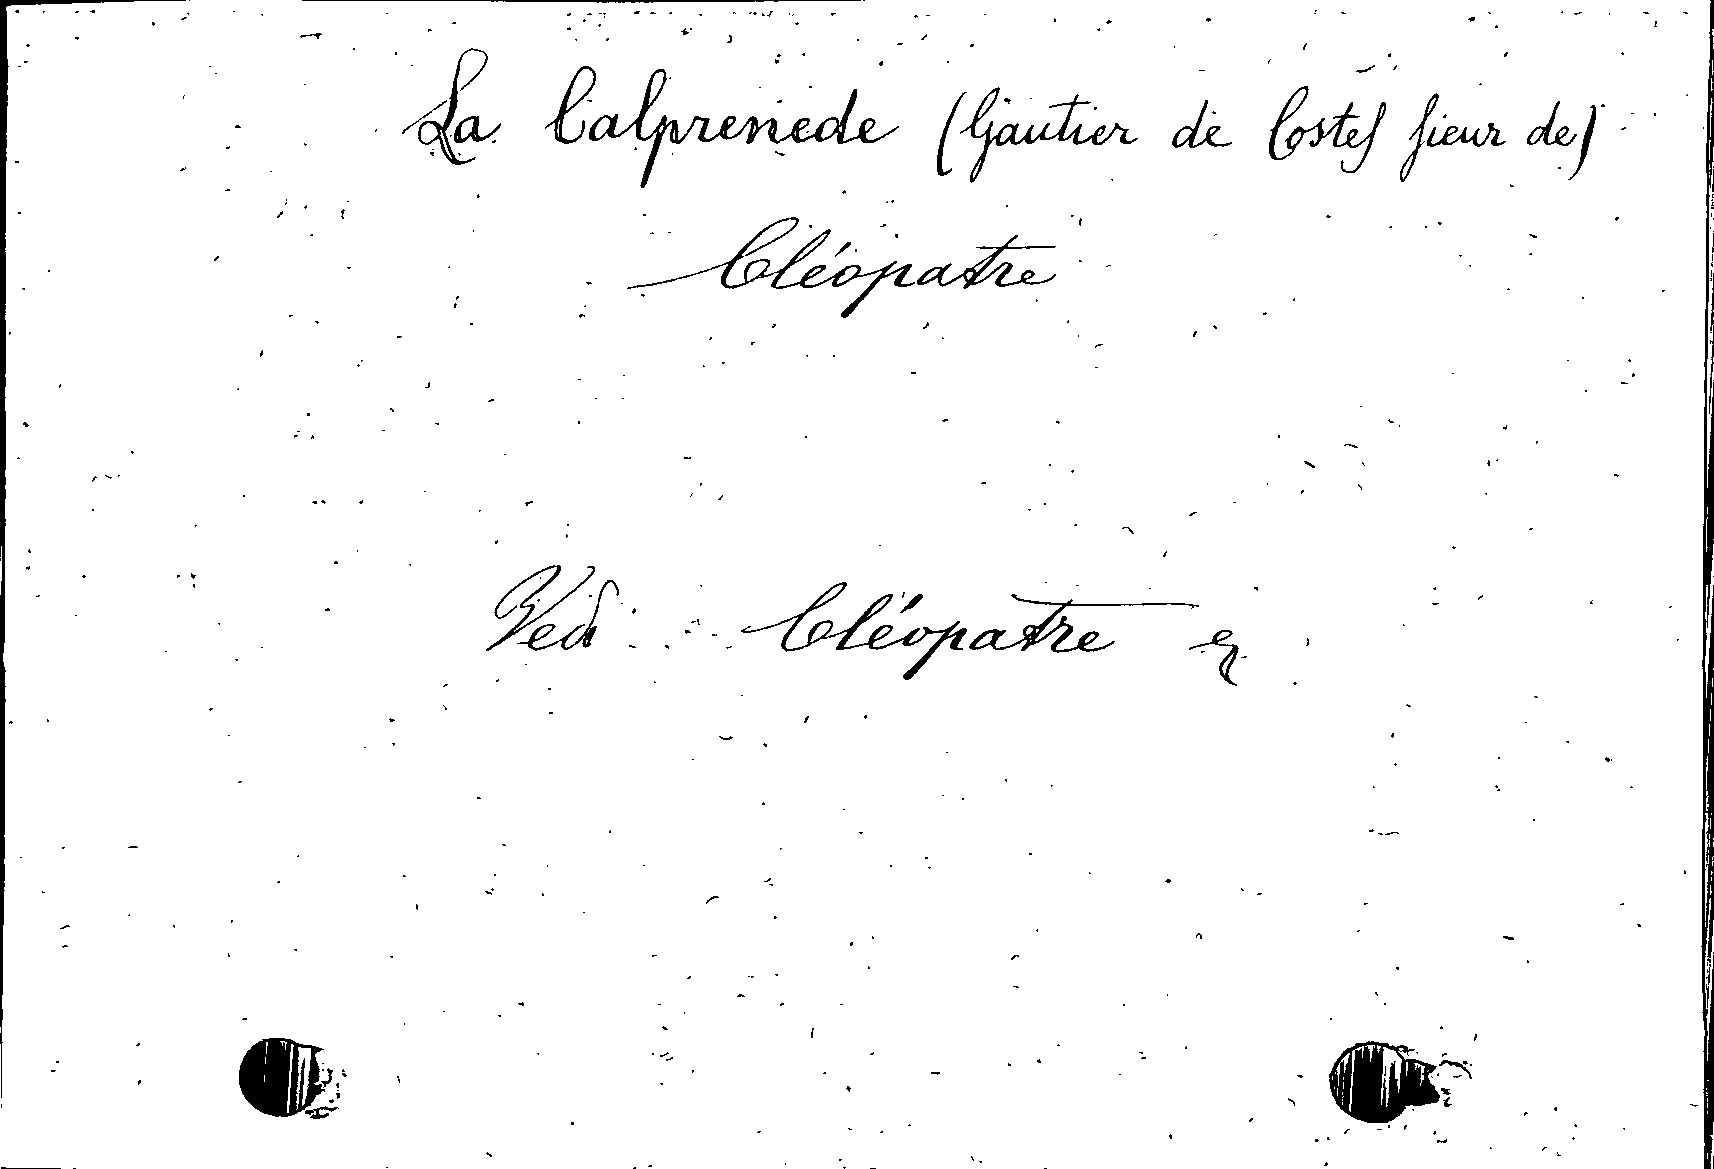 La Calprenede (Gautier de Costes sieur de)
Cléopatre
Vedi Cléopatre